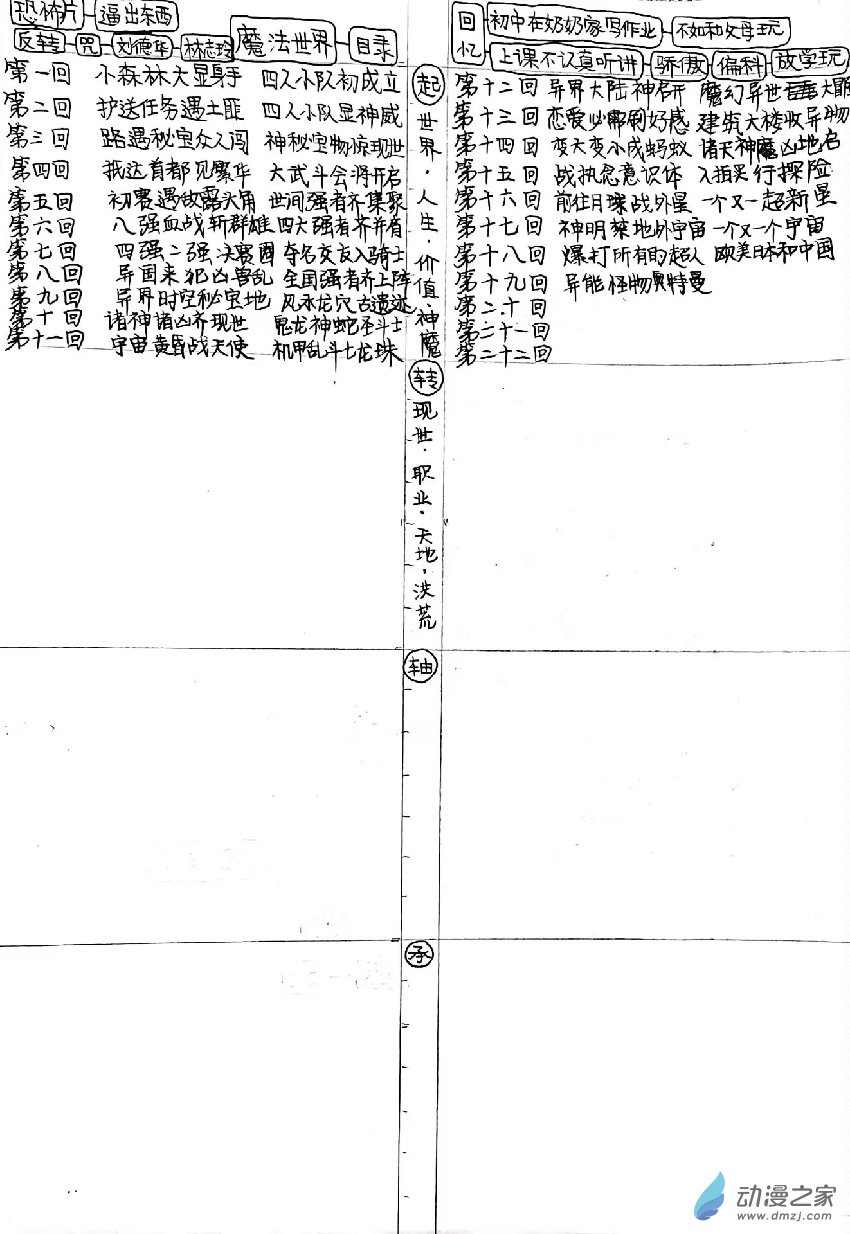 恐怖片 逼出东西
反转 咒 刘德华 林志玲 魔法世界 目录
第一回 小森林大显身手 四人小队初成立
第二回 护送任务遇土匪 四人小队显神威
第三回 路遇秘宝众人闯 神秘宝物惊现世
第四回 抵达首都见繁华 大武斗会将开启
第五回 初赛遇敌露头角 世间强者齐集聚
第六回 八强血战斩群雄 四大强者齐并肩
第七回 四强二强决赛圈 夺名交友入骑士
第八回 异国来犯凶兽乱 全国强者齐上阵
第九回 异界时空秘宝地 风水龙穴古遗迹
第十回 诸神诸凶齐现世 鬼龙神蛇圣斗士
第十一回 宇宙黄昏战天使 机甲乱斗七龙珠
起
世界·人生·价值·神魔
转
现世·职业·天地·洪荒
轴
承
回忆 初中在奶奶家写作业 不如和父母玩
上课不认真听讲 骄傲 偏科 放学玩
第十二回 异界大陆神启开 魔幻异世
第十三回 恋爱必 好感 建筑大楼收异物
第十四回 变大变小成蚂蚁 诸天神魔凶地名
第十五回 战执念意识体 行探险
第十六回 前往月球战外星 一个又一超新星
第十七回 神明 地外宇宙 一个又一个宇宙
第十八回 爆打所有的超人 欧美日本和中国
第十九回 异能怪物奥特曼
第二十回
第二十一回
第二十二回
动漫之家
www.dmzj.com